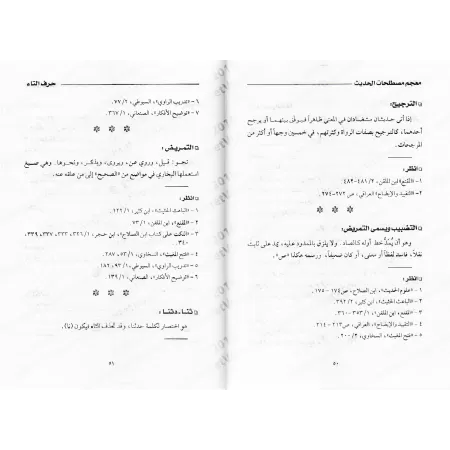 معجم مصطلحات الحديث
□ الترجيح:
إذا أتى حديثان متضادان في المعنى ظاهراً فيوفق بينهما أو يرجح
أحدهما، كالترجيح بصفات الرواة وكثرتهم، في خمسين وجهاً أو أكثر من
المرجحات.
□ انظر:
١ - «المقنع» ٢/ ٤٨١-٤٨٢.
٢ - «التقييد والإيضاح» العراقي، ص٢٧٢-٢٧٤.
□ التضبيب ويسمى التمريض:
وهو أن يُمدّ خط أوله كالصاد. ولا يلزق بالممدود عليه، يمد على ثابت
نقلاً، فاسد لفظاً أو معنى، أو كان ضعيفاً، ورسمه هكذا «صـ».
□ انظر:
١ - «علوم الحديث»، ابن الصلاح، ص١٧٤-١٧٥.
٢ - «الباعث الحثيث»، ابن كثير، ٢/ ٣٩٢.
٣ - «المقنع»، ابن الملقن، ١/ ٣٥٣-٣٦٠.
٤ - «التقييد والإيضاح»، العراقي، ص٢١٣-٢١٤.
٥ - «فتح المغيث»، السخاوي، ٢/ ٢٠٠.
٥٠
حرف التاء
٦ - «تدريب الراوي»، السيوطي، ٢/ ٧٧.
٧ - «توضيح الأفكار»، الصنعاني، ١/ ٣٦٧.
□ التمريض:
نحو: قيل، وروي عن، ويروى، ويذكر، ونحوها. وهي صيغ
استعملها البخاري في مواضع من «الصحيح» إلى من علقه عنه.
□ انظر:
١ - «الباعث الحثيث»، ابن كثير، ١/ ١٢٢.
٢ - «المقنع»، ابن الملقن، ١/ ٧٣.
٣ - «النكت على كتاب ابن الصلاح»، ابن حجر، ١/ ٣٢٦، ٣٣٣، ٣٣٧، ٣٣٩،
٣٤٠.
٤ - «فتح المغيث»، السخاوي، ١/ ٥٣، ٢٨٧.
٥ - «تدريب الراوي»، السيوطي، ١/ ٩٣، ١٨٢.
٦ - «توضيح الأفكار»، الصنعاني، ١/ ١٣٩.
□ ثناء، دثناء:
هو اختصار لكلمة حدثنا، وقد تُحذف الثاء فيكون (نا).
٥١